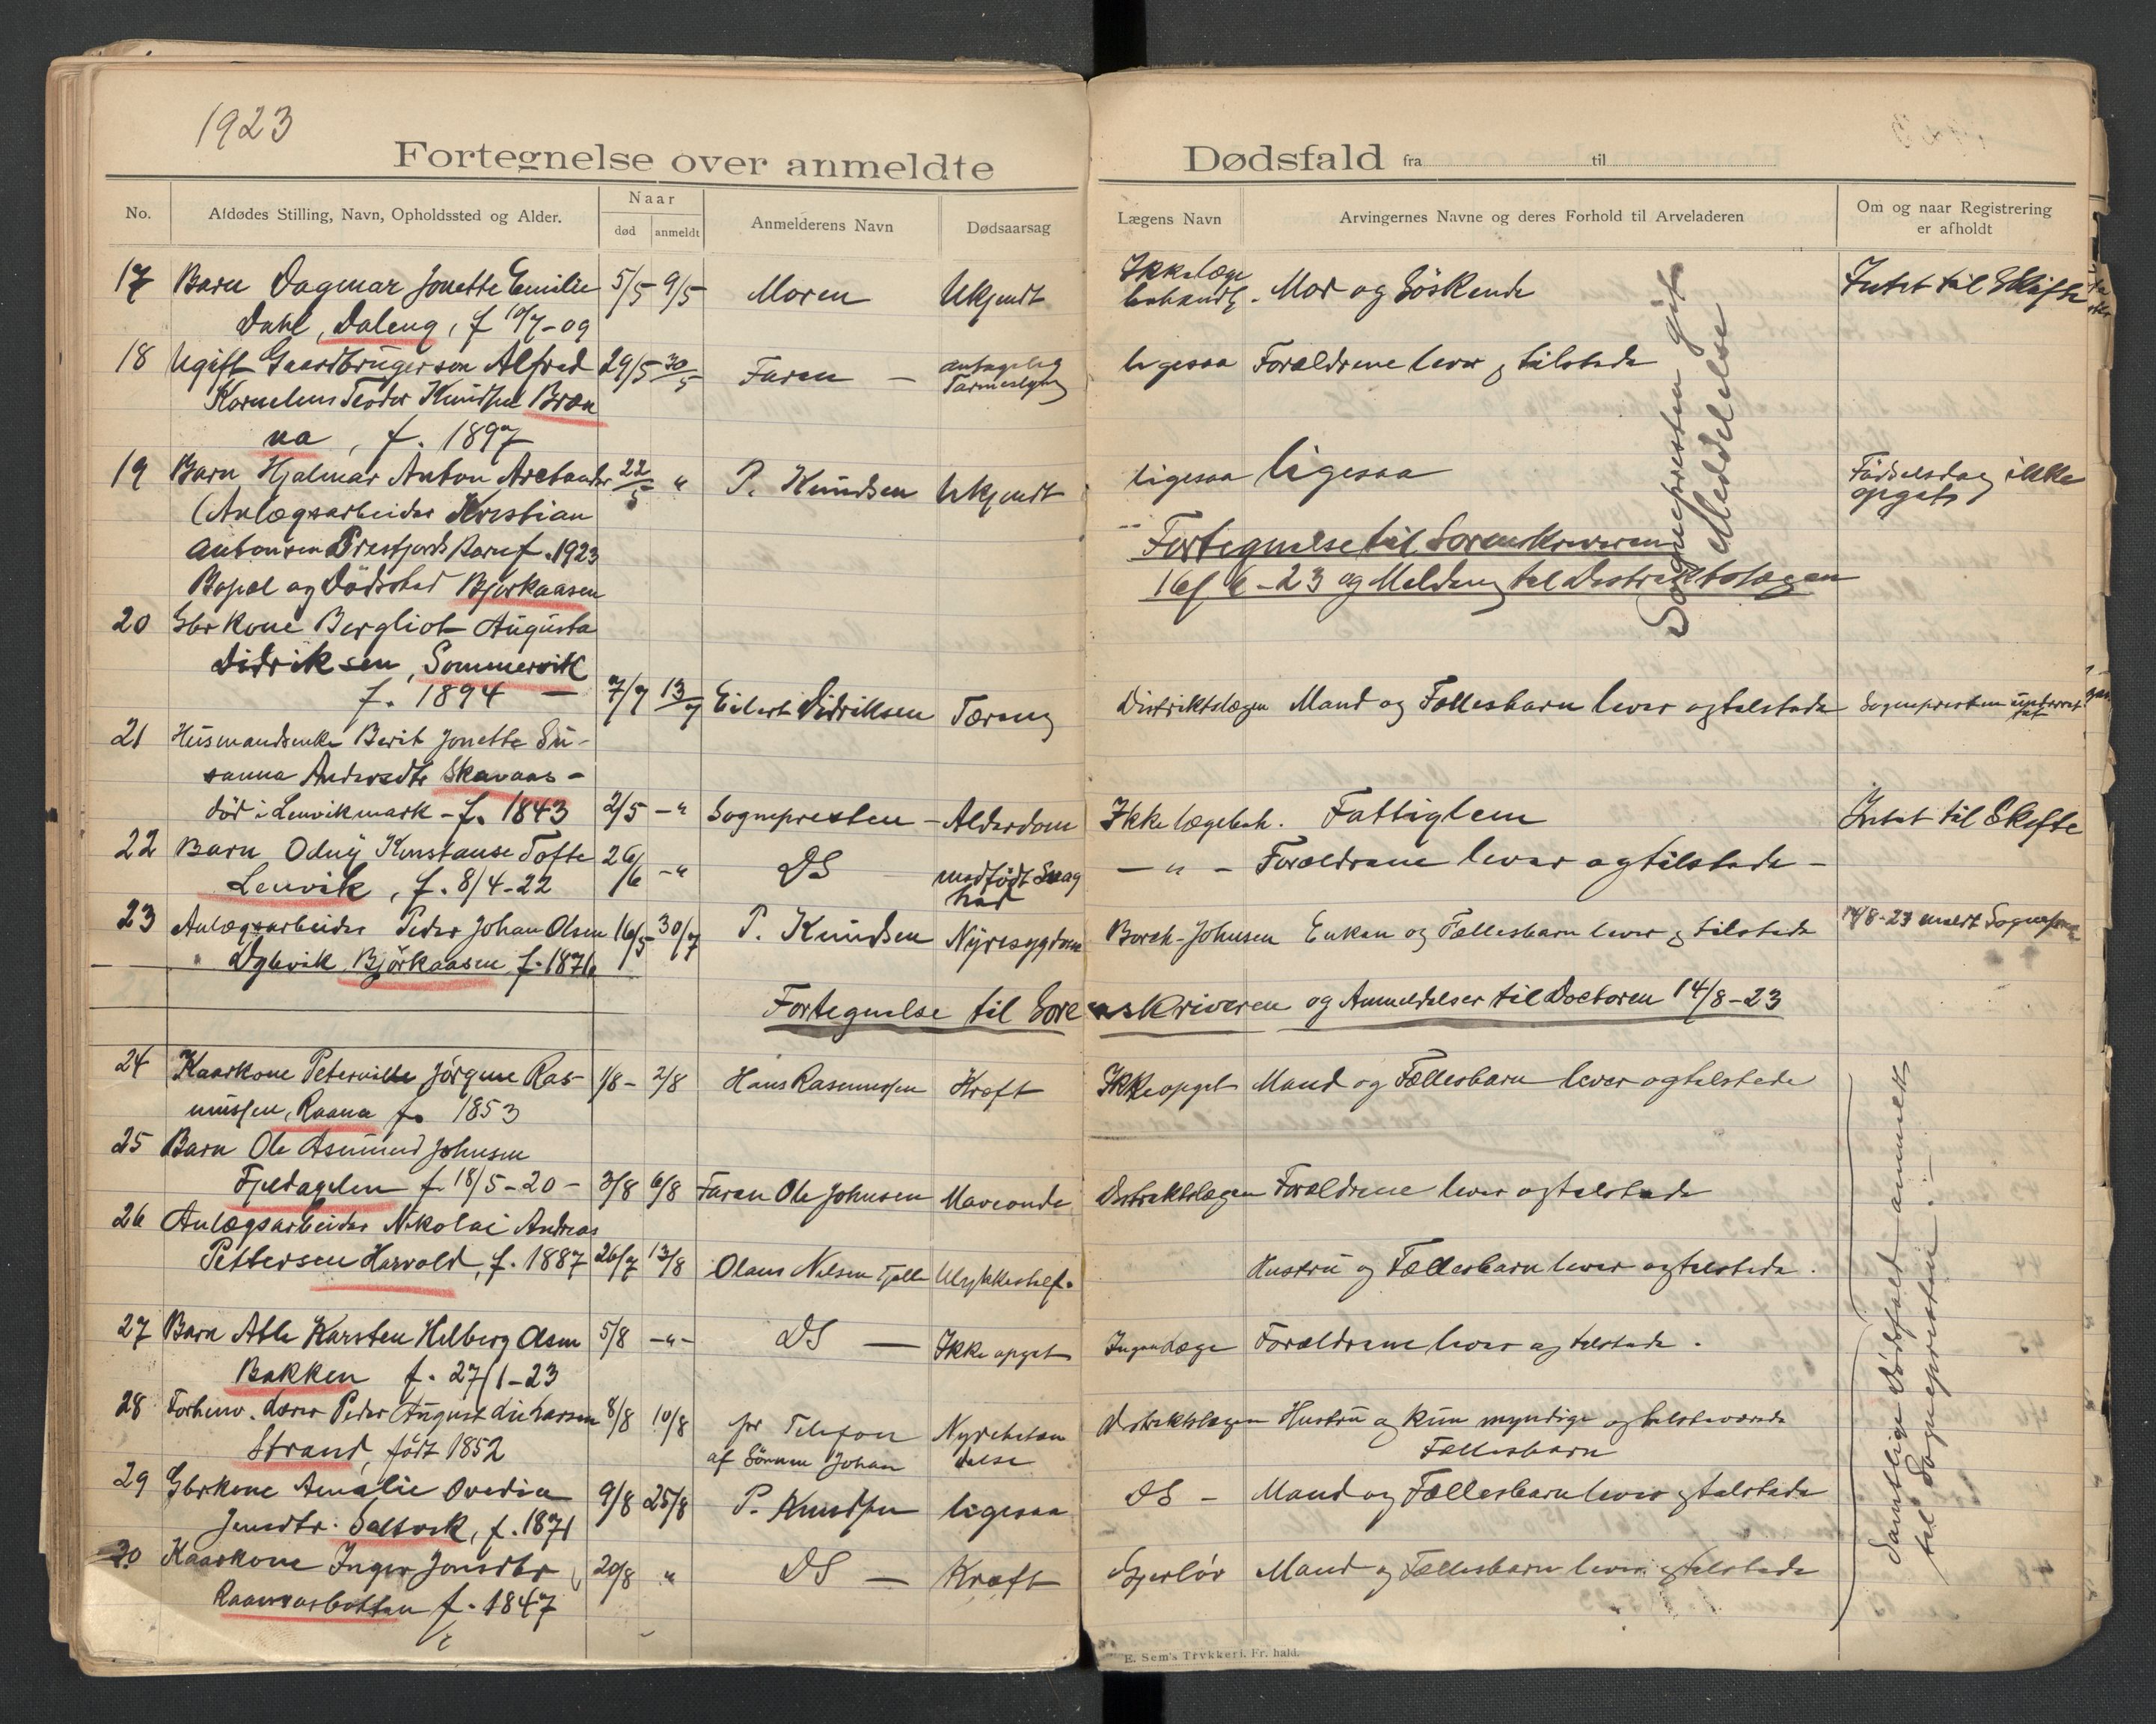 1923
Fortegnelse over anmeldte Dødsfald fra til
No.
Afdødes Stilling, Navn, Opholdssted og Alder.
Naar
død
anmeldt
Anmelderens Navn
Dødsaarsag
Lægens Navn
Arvingernes Navne og deres Forhold til Arveladeren
Om og naar Registrering
er afholdt
17 Barn Dagmar Jonette Emilie 5/5 9/5 Moren Ukjendt Ikke læge Mor og Söskende Intet til Skifte
Dahl, Daleng, f 10/7-09 behandl.
18 Ugift Gaardbrugersøn Alfred 29/5 30/5 Faren — antagelig ligesaa Forældrene lever og tilstede
Kornelius Teodor Knudsen Bræn
na, f. 1897
19 Barn Hjalmar Anton 22/5 " P. Knudsen Ukjendt ligesaa ligesaa Födselsdag ikke
(Anlægsarbeider Kristian opgit
Antonsen Prestjords Barn f. 1923
Bopæl og Dödssted Bjørkaasen
Fortegnelse til Sorenskriveren
16/6-23 og Melding til Distriktslægen
Sognepresten git
Meddelelse
20 Gbrkone Bergliot Augusta
Didriksen, Sommervik
f. 1894 — 7/7 13/7 Eilert Didriksen Tæring Distriktslægen Mand og Fællesbarn lever og tilstede Sognepresten underret
tet
21 Husmandsenke Berit Jonette Su-
sanna Andersdtr Skavaas-
död i Lenvikmark - f. 1843 2/5 -" Sognepresten - Alderdom Ikke lægebeh. Fattiglem Intet til Skifte
22 Barn Odny Konstanse Tofte 26/6 -" DS medfödt Svag — " — Forældrene lever og tilstede —
Lenvik, f. 8/4-22 hed
23 Anlægsarbeider Peder Johan Olsen 16/5 30/7 P. Knudsen Nyresygdom Borch-Johnsen Enken og Fællesbarn lever og tilstede 14/8-23 meldt
Björkaasen f. 1876
Fortegnelse til Sorenskriveren og Anmeldelser til Doctoren 14/8-23
24 Kaarkone Petervilla Jörgine Ras- 1/8- 2/8 Hans Rasmussen Kræft Ikke opget Mand og Fællesbarn lever og tilstede
mussen, Raana f. 1853
25 Barn Ole Asmund Johnsen
Fjeldagelen f 18/5-20 - 3/8 6/8 Faren Ole Johnsen Maveonde Distriktslægen Forældrene lever og tilstede
26 Anlægsarbeider Nikolai Andreas
Pettersen Harvold, f. 1887 26/7 13/8 Olaus Nilsen Ulykkestilf. Hustru og Fællesbarn lever og tilstede.
27 Barn Atle Karsten Helberg Olsen 5/8 -"- DS — Ikke opget Ingen Læge Forældrene lever og tilstede.
Bakken f. 27/1-23
28 Forhenv. Lærer Peder August Larsen 8/8 10/8 pr Telefon Nyrebeten Distriktslægen Hustru og kun myndige og tilsteværende
Strand, födt 1852 af Sönnen Johan delse Fællesbarn
29 Gbrkone Amalie Ovedia 9/8 25/8 P. Knudsen ligesaa DS — Mand og Fællesbarn lever og tilstede
Jensdtr. Saltvik, f. 1871
30 Kaarkone Inger Jonsdtr 20/8 " DS — Kræft Mand og Fællesbarn lever og tilstede
Raanvasbotten f. 1847
Samtlige Dödsfald anmeldt
til Sognepresten. —
E. Sem's Trykkeri, Fr. hald.